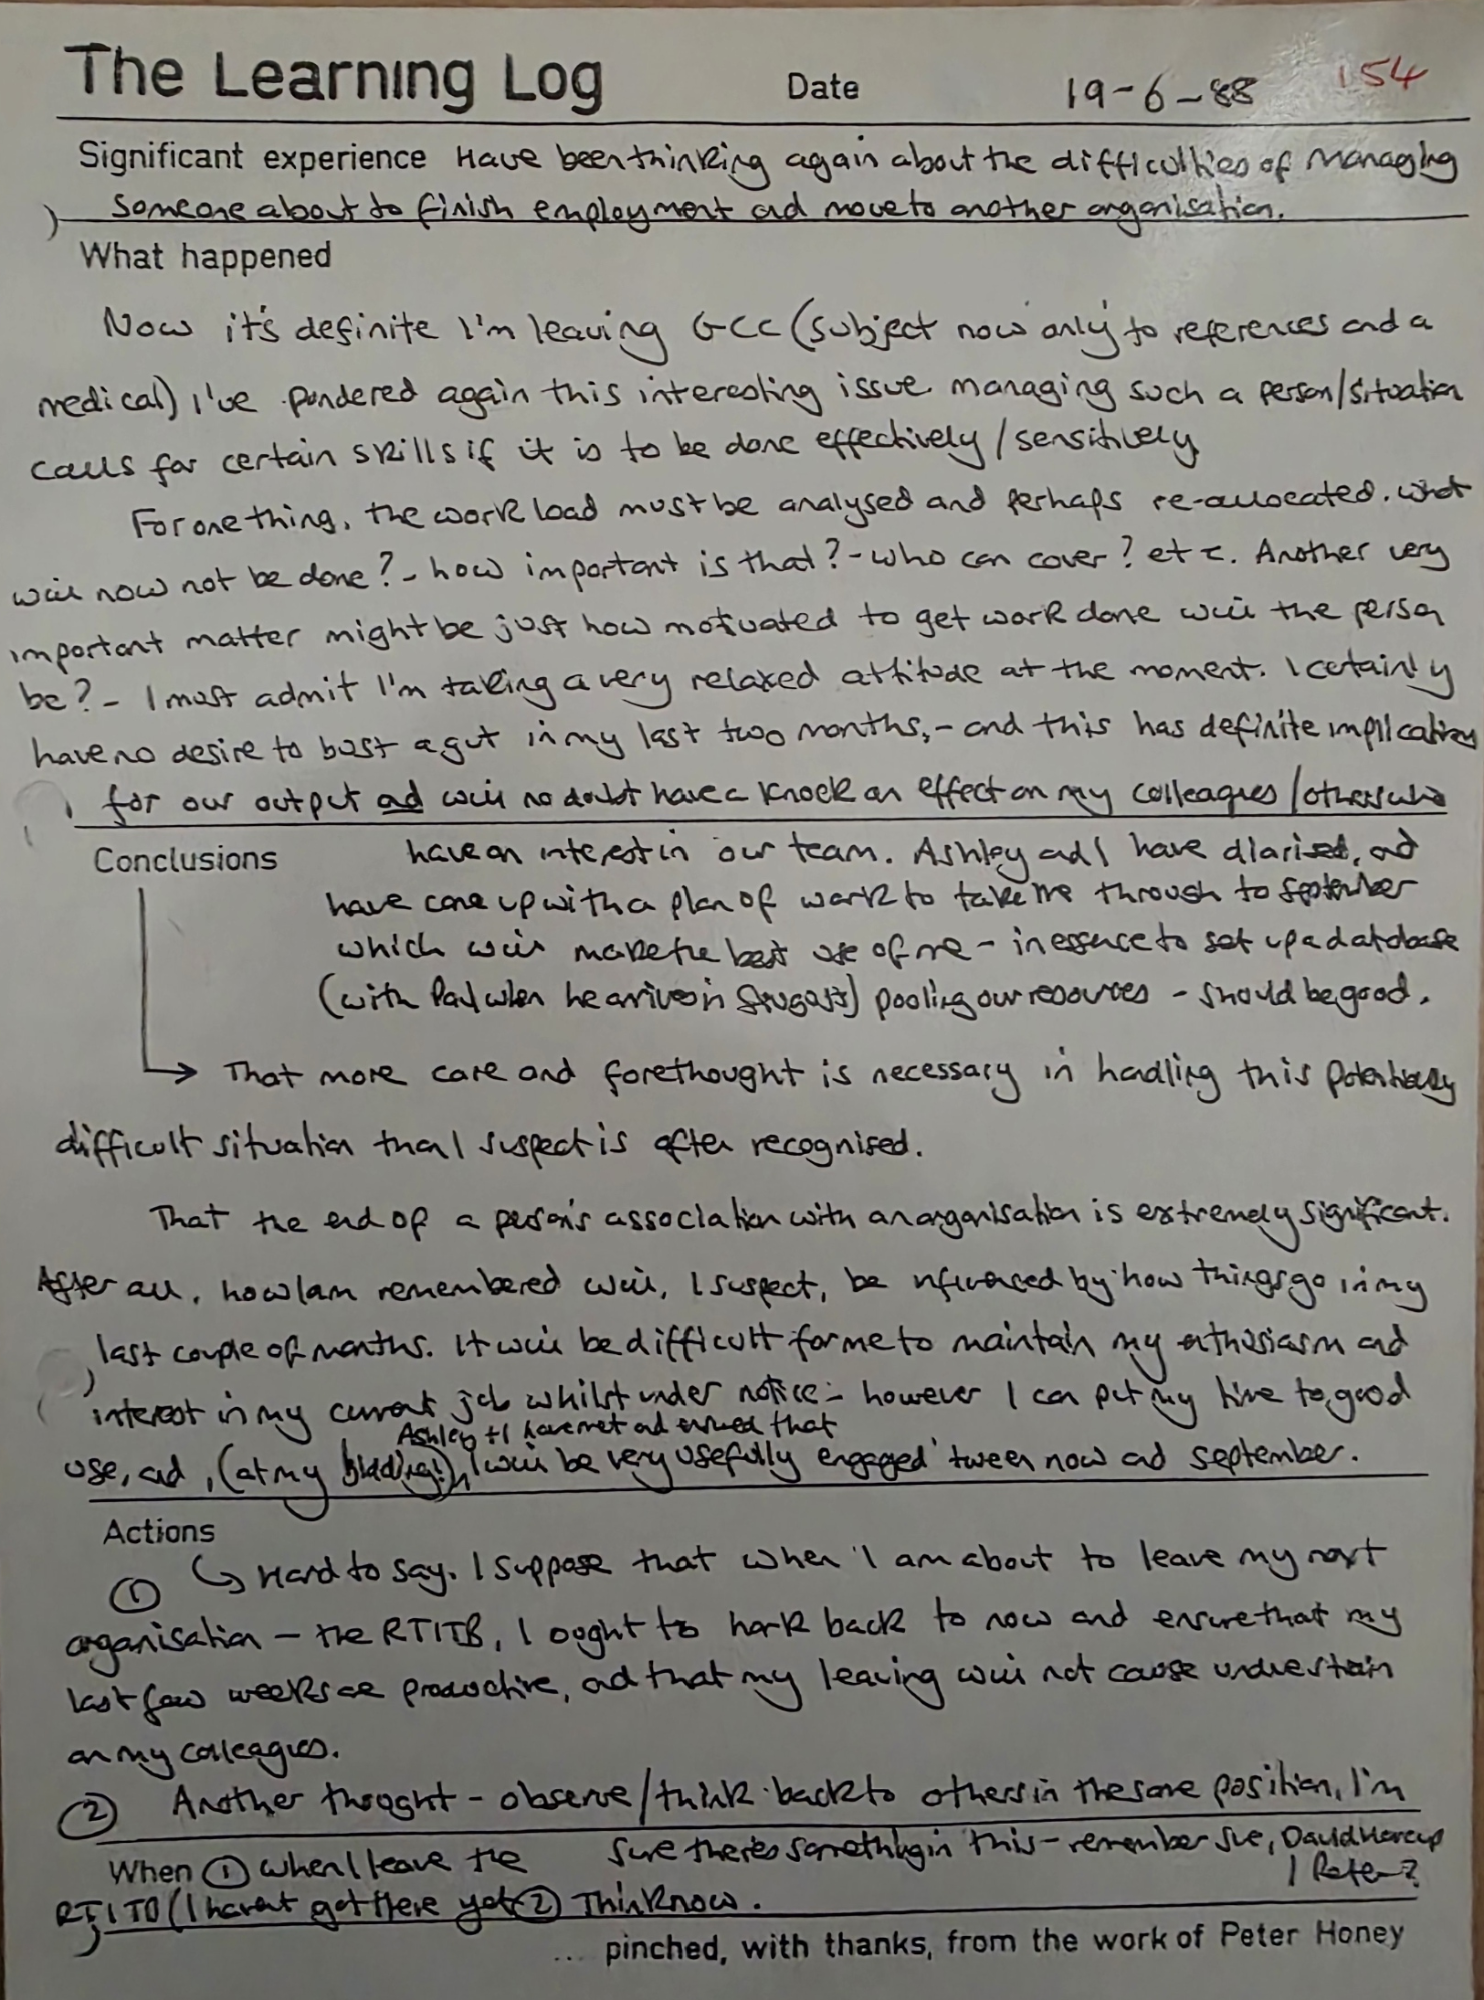 The Learning Log Date 19-6-88 154
Significant experience Have been thinking again about the difficulties of managing
someone about to finish employment ad move to another organisation.
What happened
Now it's definite I'm leaving GCC (subject now only to references and a
medical) I've pondered again this interesting issue managing such a person/situation
calls for certain skills if it is to be done effectively/sensitively
For one thing, the work load must be analysed and perhaps re-allocated. what
will now not be done? - how important is that? - who can cover? etc. Another very
important matter might be just how motivated to get work done will the person
be? - I must admit I'm taking a very relaxed attitude at the moment. I certainly
have no desire to bust a gut in my last two months, - and this has definite implications
for our output ad will no doubt have a knock on effect on my colleagues/others who
Conclusions have an interest in our team. Ashley ad I have diarised, ad
have come up with a plan of work to take me through to September
which will make the best use of me - in essence to set up a database
(with Paul when he arrives in August) pooling our resources - should be good.
That more care and forethought is necessary in handling this potentially
difficult situation than I suspect is often recognised.
That the end of a person's association with an organisation is extremely significant.
After all, how I am remembered will, I suspect, be nfluenced by how things go in my
last couple of months. It will be difficult for me to maintain my enthusiasm and
interest in my current job whilst under notice - however I can put my time to good
Ashley + I have met ad ensured that
use, ad, (at my bidding!) I will be very usefully engaged 'tween now ad September.
Actions
① Hard to say. I suppose that when I am about to leave my next
organisation - the RTITB, I ought to hark back to now and ensure that my
last few weeks are productive, ad that my leaving will not cause undue strain
on my colleagues.
② Another thought - observe/think back to others in the same position, I'm
sure there's something in this - remember Sue, David
When ① when I leave the / Peter?
RTITB (I haven't got there yet ② Think now.
... pinched, with thanks, from the work of Peter Honey